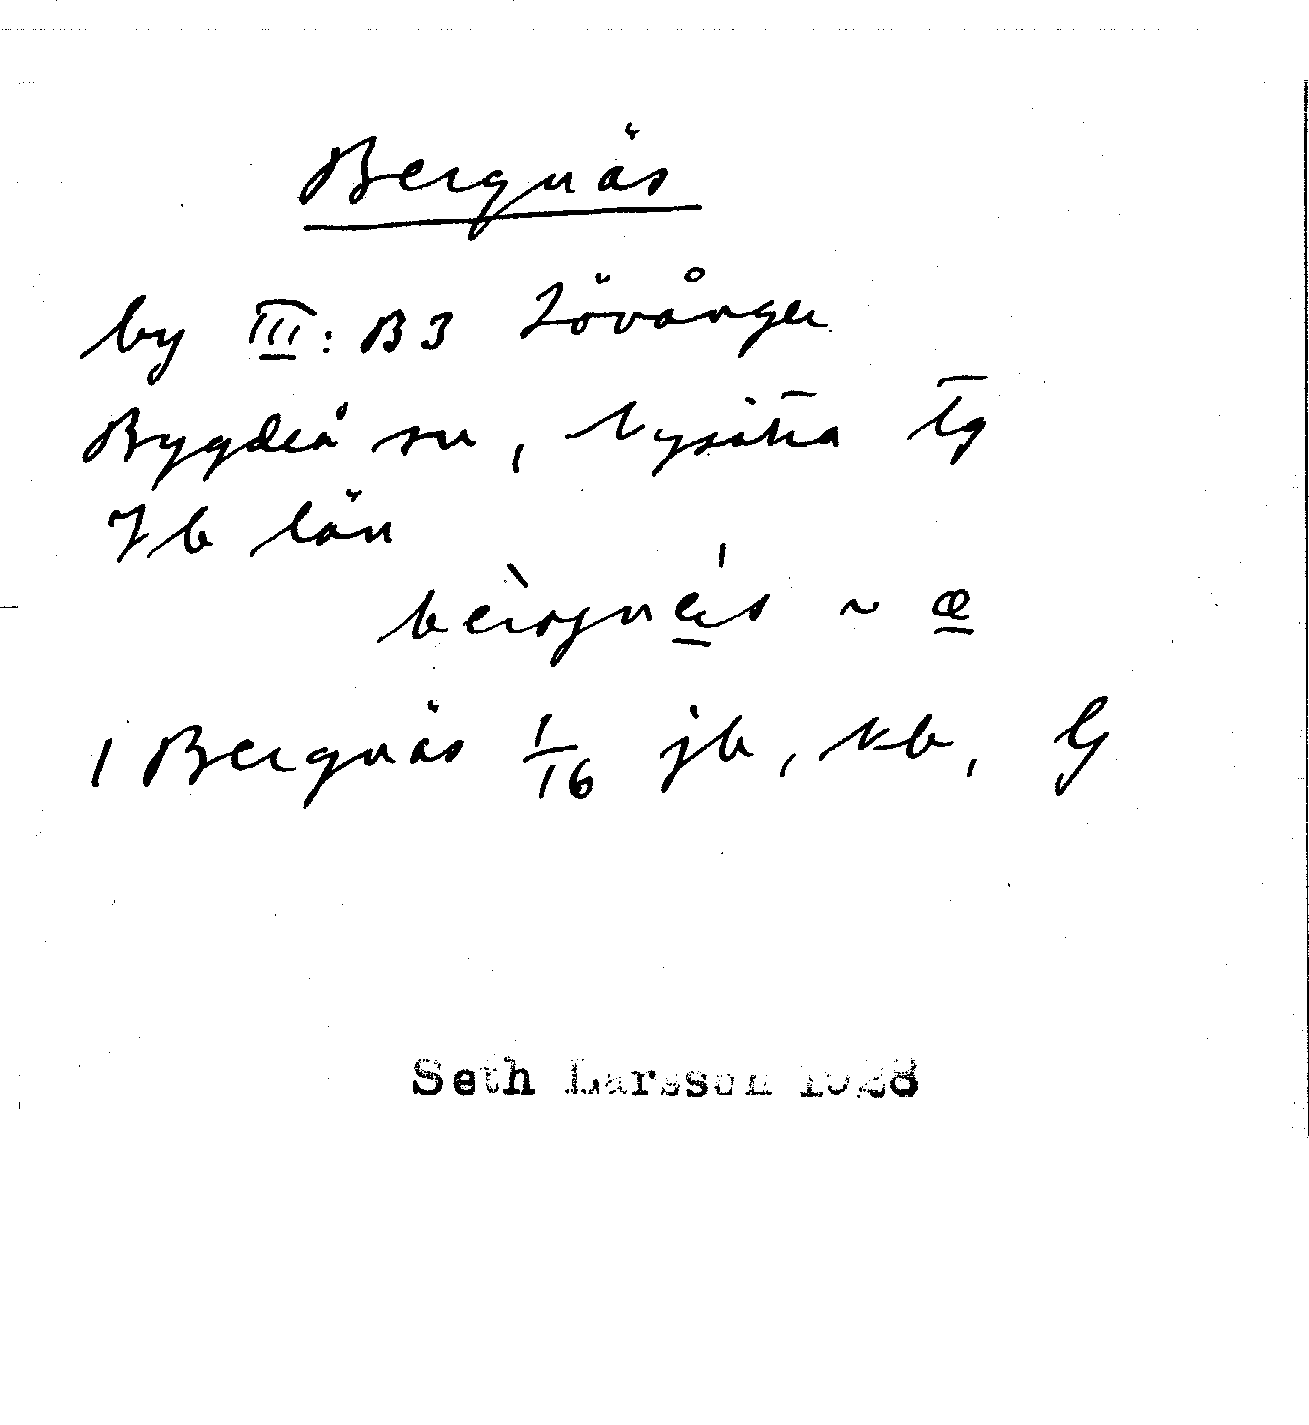 Bergnäs
by III: B3 Lövånger
Bygdeå sn, Nysätra tg
Vb län
1 Bergnäs 1/16 jb, kb, G
Seth Larsson 1928